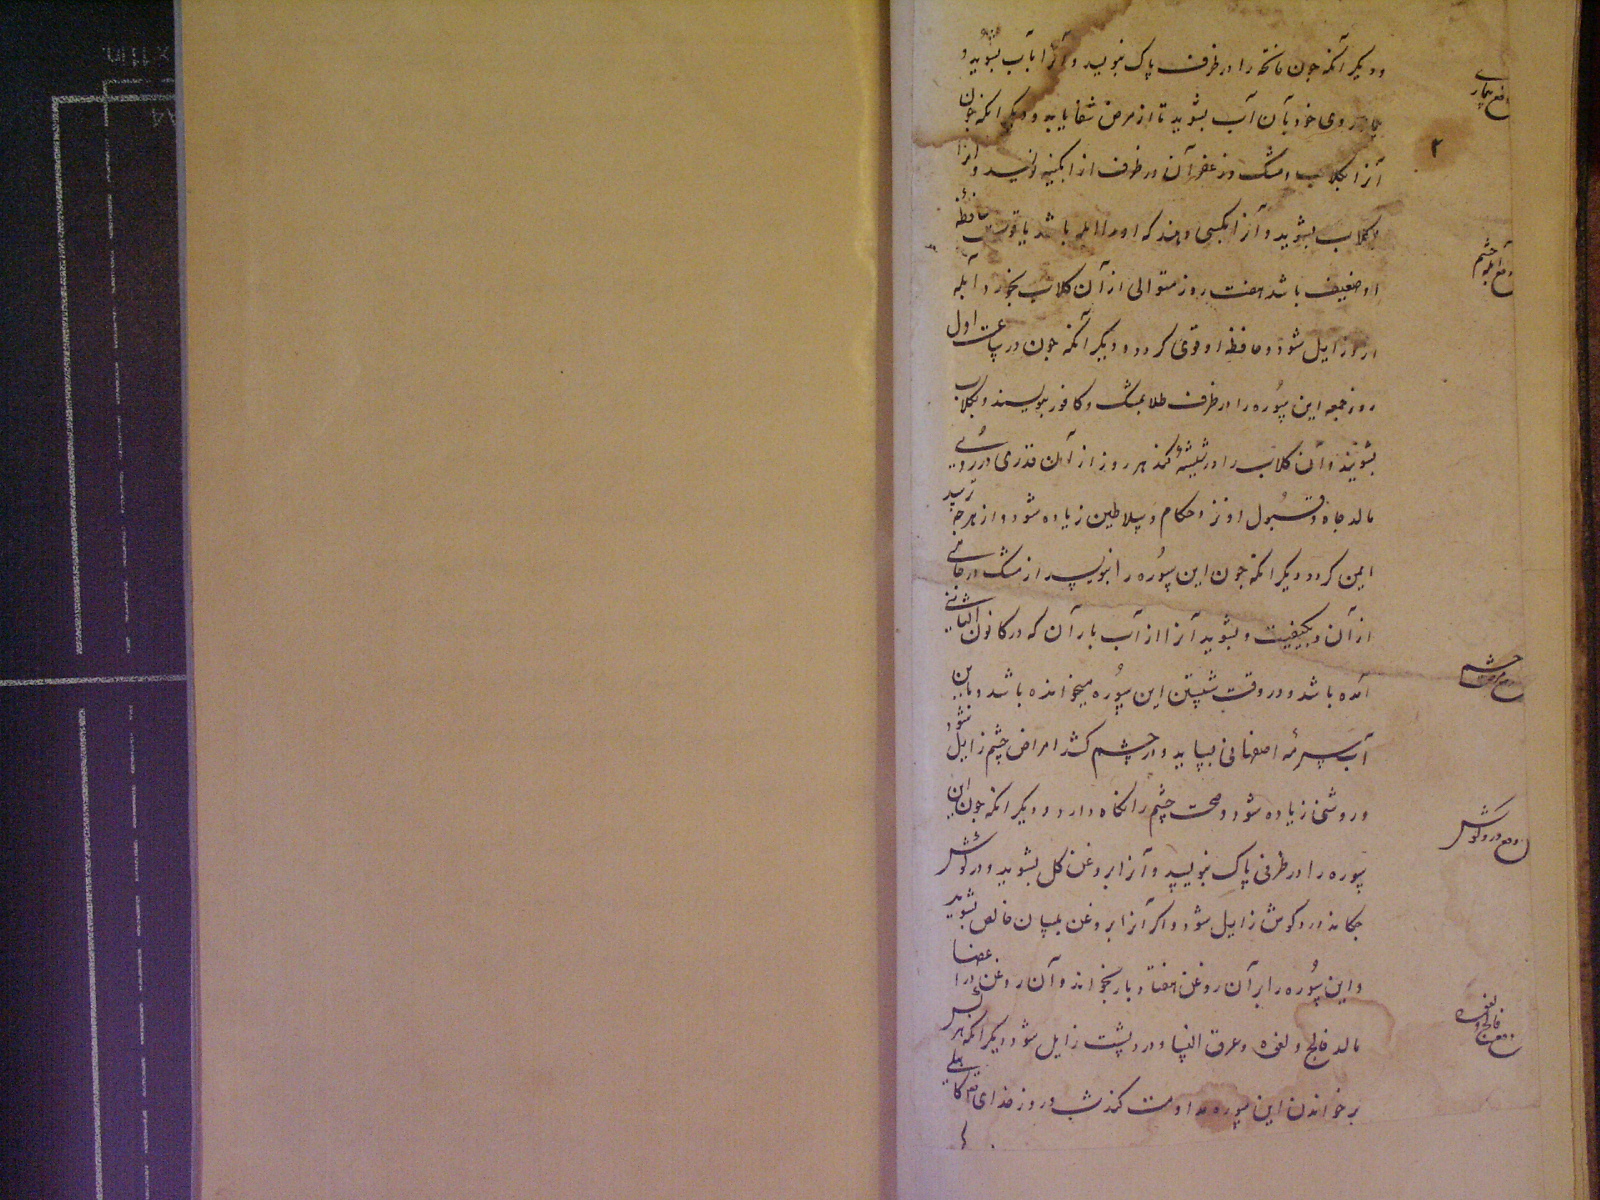 و دیگر آنکه چون فاتحه را در ظرف پاک بنویسد و آنرا بآب بشوید و
روی خود بآن آب بشوید تا از مرض شفا یابد و دیگر آنکه چون
آنرا بکلاب و مشک و زعفران در ظرف از آبکینه نویسند و آنرا
بکلاب بشوید و آنرا بکسی دهند که او را ابله باشد یا قوت حافظهٔ
او ضعیف باشد هفت روز متوالی از آن کلاب بخورد آبله
ازو زایل شود و حافظه او قوی کردد و دیگر آنکه چون در ساعت اول
روز جمعه این سوره را در ظرف طلا بمشک و کافور بنویسند و بکلاب
بشویند و آن کلاب را در شیشه کند هر روز از آن قدری در روی
مالد جاه و قبول او نزد حکام و سلاطین زیاده شود و از هر چه ترسد
ایمن کردد دیگر آنکه چون این سوره را بنویسد از مشک در جامی
از آن و بکیفیت و بشوید آنرا از آب باران که در کانون الثانی
آمده باشد و در وقت شستن این سوره میخوانده باشد و باین
آب سرمه اصفهانی بساید و در چشم کشد امراض چشم زایل شود
و روشنی زیاده شود و صحت چشم را نکاه دارد و دیگر آنکه چون این
سوره را در ظرفی پاک بنویسد و آنرا بروغن کل بشوید و در کوش
چکاند درد کوش زایل شود و اکر آنرا بروغن بلسان خالص بشوید
و این سوره را بر آن روغن هفتاد بار بخواند و آن روغن را در اعضا
مالد فالج و لقوه و عرق النسا و درد پشت زایل شود دیگر آنکه هر کس
بر خواندن این سوره مداومت کند شب و روز خدای تع کاهلی
۲
دفع بیماری
دفع آبله چشم
دفع امراض چشم
دفع درد کوش
دفع فالج و لقوه